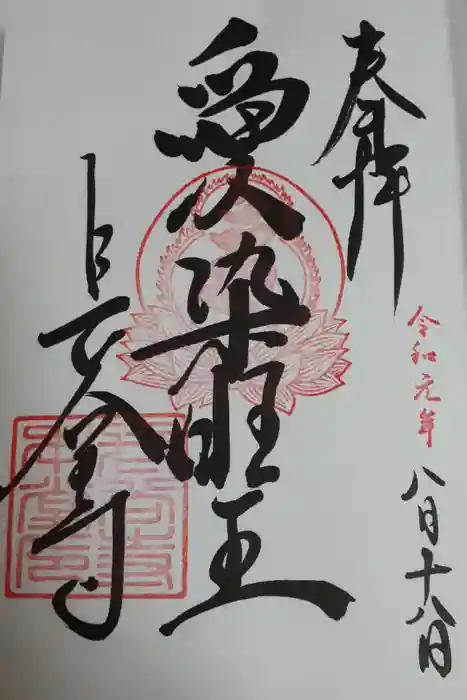 奉拝
令和元年
八月十八日
愛染明王
寺